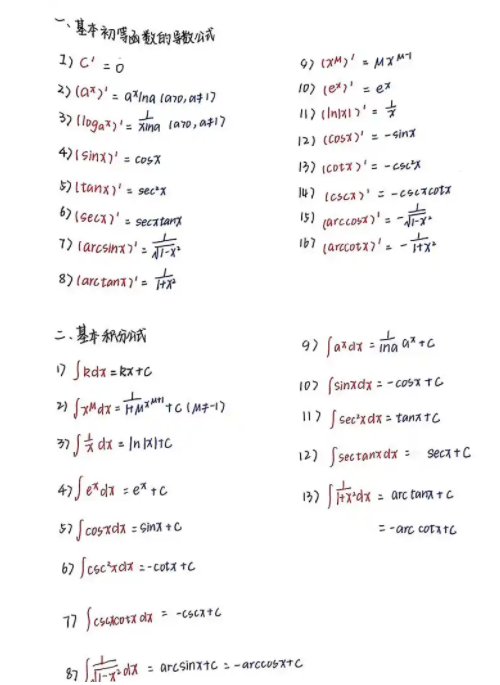 一、基本初等函数的导数公式
1) C' = 0
2) (aˣ)' = aˣlna (a>0, a≠1)
3) (logₐx)' = 1/(xlna) (a>0, a≠1)
4) (sinx)' = cosx
5) (tanx)' = sec²x
6) (secx)' = secxtanx
7) (arcsinx)' = 1/√(1-x²)
8) (arctanx)' = 1/(1+x²)
9) (x^μ)' = μx^(μ-1)
10) (eˣ)' = eˣ
11) (ln|x|)' = 1/x
12) (cosx)' = -sinx
13) (cotx)' = -csc²x
14) (cscx)' = -cscxcotx
15) (arccosx)' = -1/√(1-x²)
16) (arccotx)' = -1/(1+x²)
二、基本积分公式
1) ∫kdx = kx+C
2) ∫x^μdx = 1/(1+μ) x^(μ+1) + C (μ≠-1)
3) ∫1/x dx = ln|x|+C
4) ∫eˣdx = eˣ+C
5) ∫cosxdx = sinx+C
6) ∫csc²xdx = -cotx+C
7) ∫cscxcotxdx = -cscx+C
8) ∫1/√(1-x²)dx = arcsinx+C = -arccosx+C
9) ∫aˣdx = 1/lna aˣ+C
10) ∫sinxdx = -cosx+C
11) ∫sec²xdx = tanx+C
12) ∫sectanxdx = secx+C
13) ∫1/(1+x²)dx = arctanx+C
= -arccotx+C